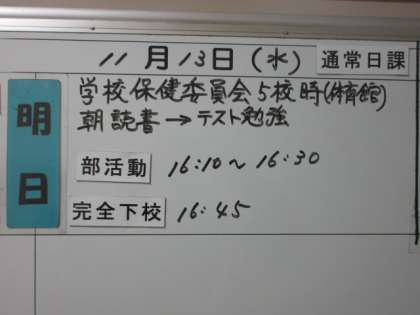 11月13日(水) 通常日課
明日
学校保健委員会5校時(体育館)
朝読書→テスト勉強
部活動 16:10～16:30
完全下校 16:45